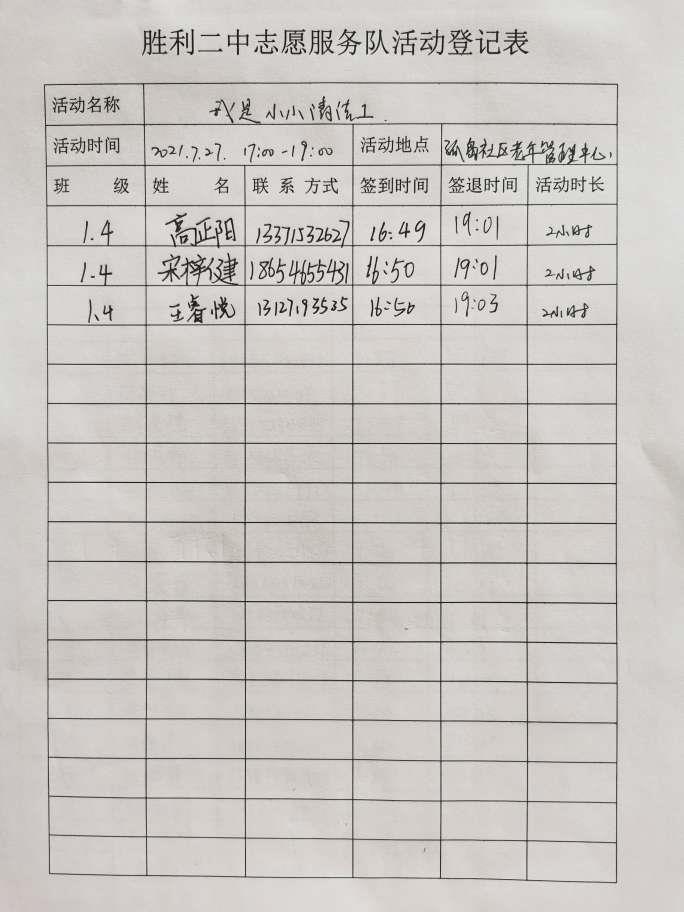 胜利二中志愿服务队活动登记表
活动名称 我是小小清洁工.
活动时间 2021.7.27. 17:00-19:00 活动地点 孤岛社区老年管理中心
班 级 姓 名 联系方式 签到时间 签退时间 活动时长
1.4 高正阳 13371532627 16:49 19:01 2小时
1.4 宋梓健 18654655431 16:50 19:01 2小时
1.4 王睿悦 13127193535 16:50 19:03 2小时